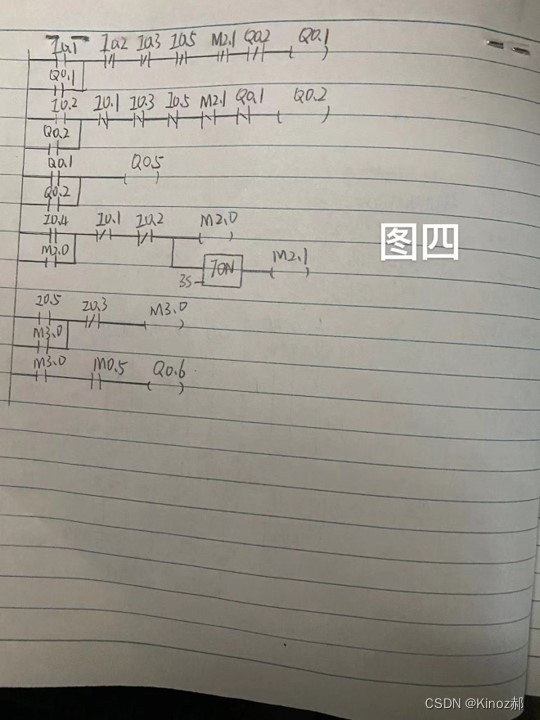 I0.1 I0.2 I0.3 I0.5 M2.1 Q0.2 Q0.1
Q0.1
I0.2 I0.1 I0.3 I0.5 M2.1 Q0.1 Q0.2
Q0.2
Q0.1 Q0.5
Q0.2
I0.4 I0.1 I0.2 M2.0
M2.0
TON M2.1
3S
图四
I0.5 I0.3 M3.0
M3.0
M3.0 M0.5 Q0.6
CSDN @Kinoz郝